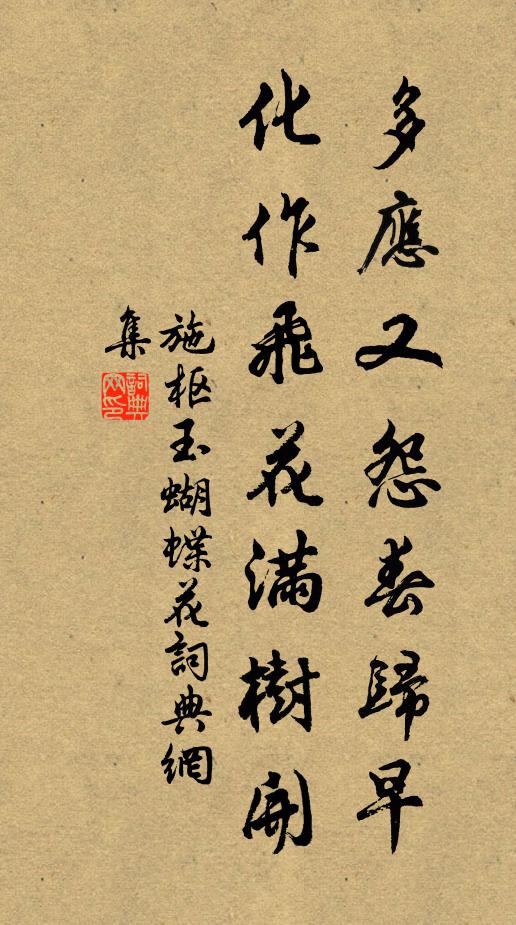 多應又怨春歸早
化作飛花滿樹開
施枢玉蝴蝶花詞典網
集
詞典網印